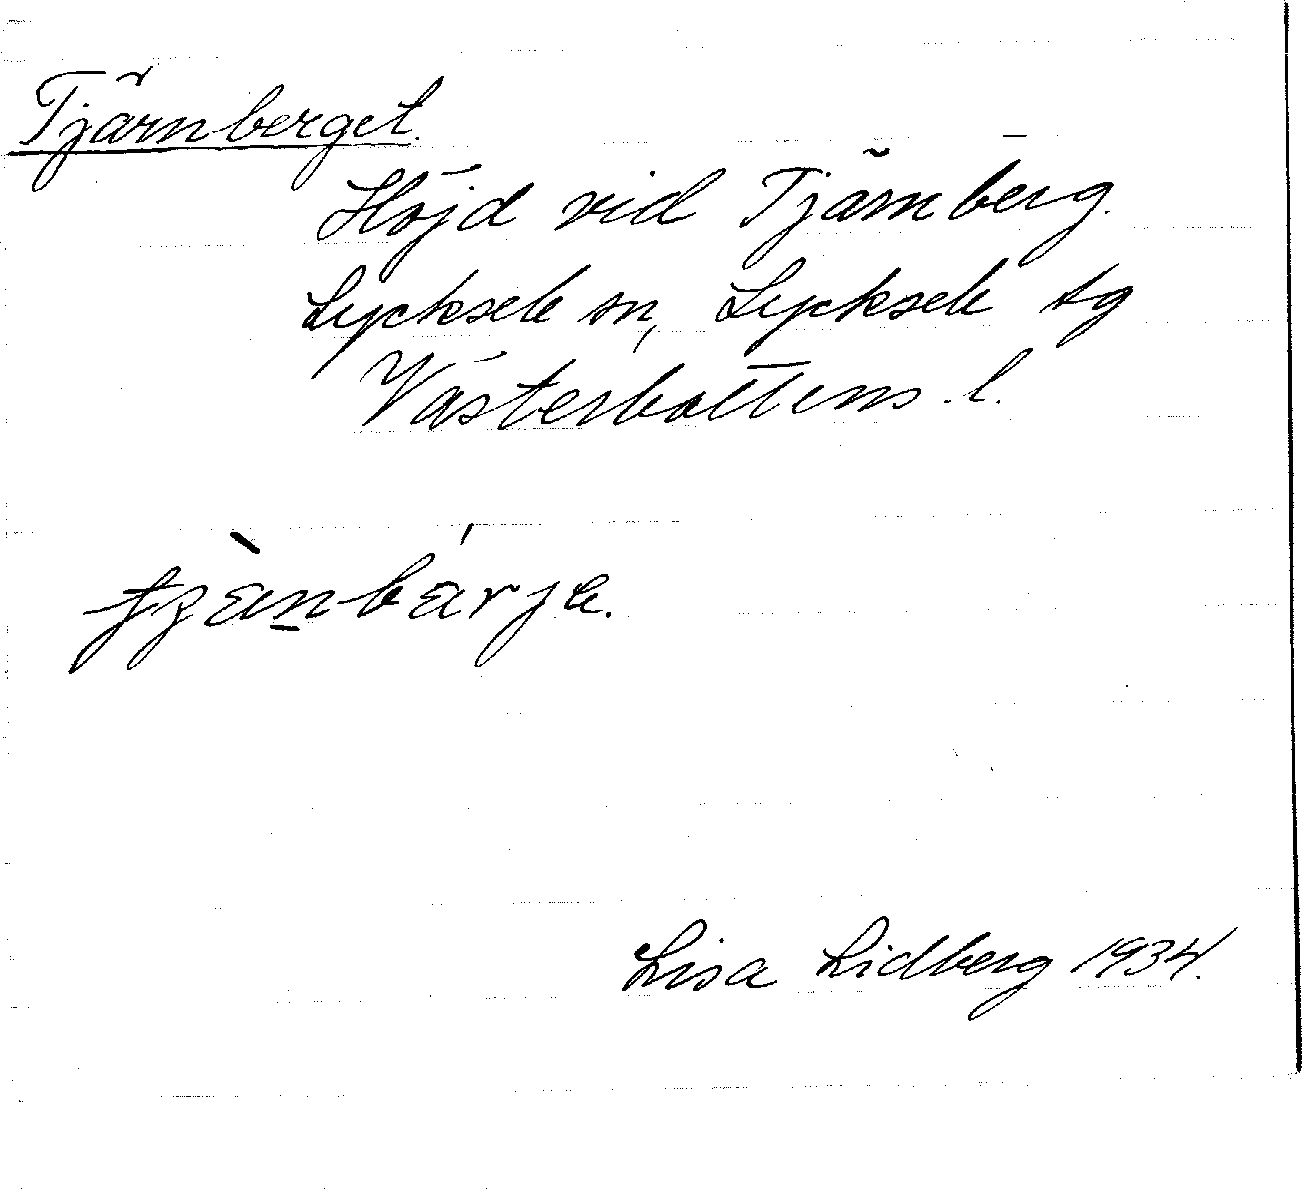 Tjärnberget.
Höjd vid Tjärnberg.
Lycksele sn, Lycksele tg
Västerbottens l.
Lisa Lidberg 1934.